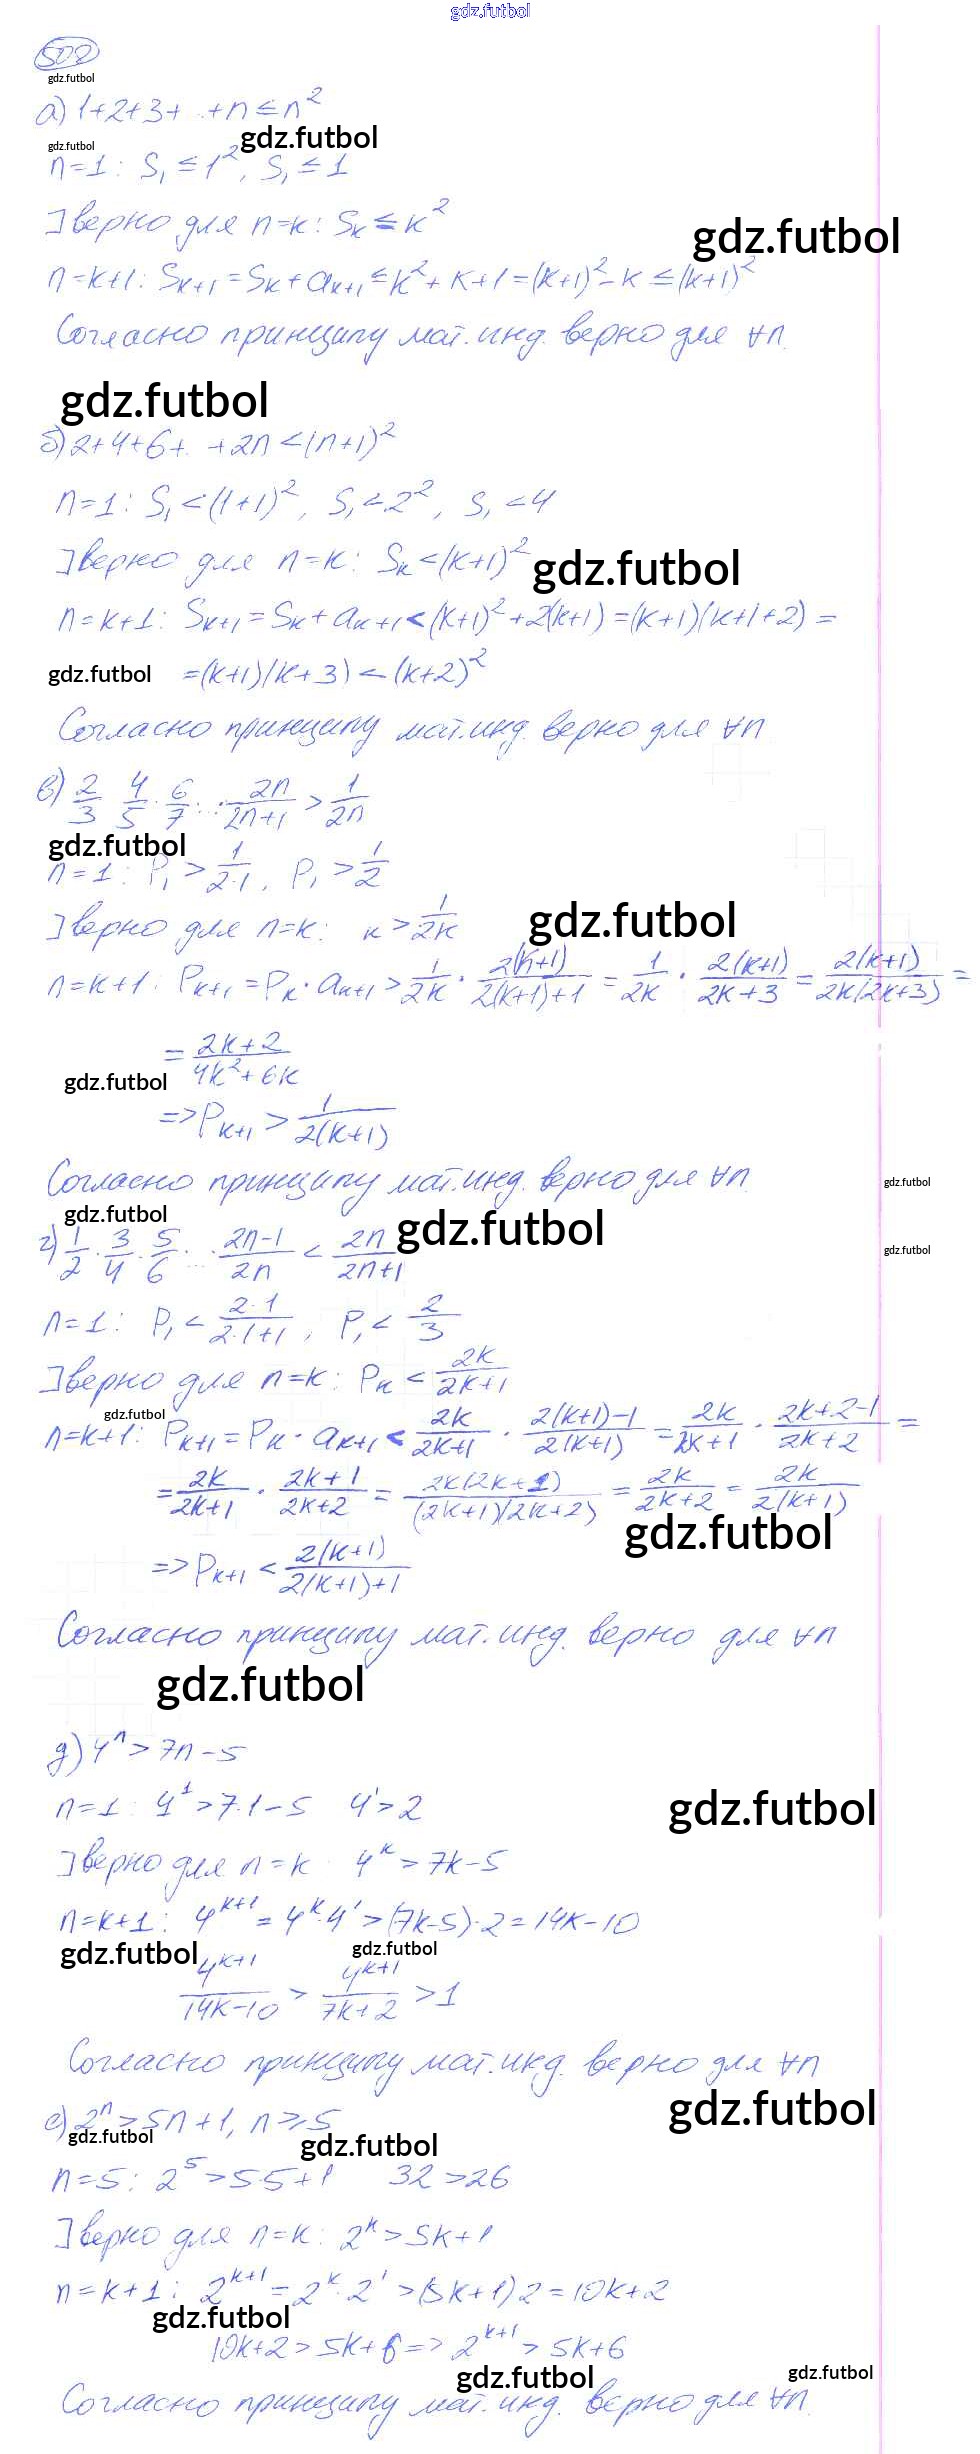 gdz.futbol
502
gdz.futbol
а) 1+2+3+ . . +n ≤ n²
gdz.futbol
gdz.futbol
n=1: S₁ ≤ 1², S₁ ≤ 1
] верно для n=k: Sₖ ≤ k²
gdz.futbol
n=k+1: Sₖ₊₁ = Sₖ + aₖ₊₁ ≤ k² + k+1 = (k+1)² - k ≤ (k+1)²
Согласно принципу мат. инд. верно для ∀n.
gdz.futbol
б) 2+4+6+. +2n < (n+1)²
n=1: S₁ < (1+1)², S₁ < 2², S₁ < 4
] верно для n=k: Sₖ < (k+1)²
gdz.futbol
n=k+1: Sₖ₊₁ = Sₖ + aₖ₊₁ < (k+1)² + 2(k+1) = (k+1)(k+1+2) =
gdz.futbol
= (k+1)(k+3) < (k+2)²
Согласно принципу мат.инд. верно для ∀n
в) 2/3 · 4/5 · 6/7 · ... · 2n/(2n+1) > 1/(2n)
gdz.futbol
n=1: P₁ > 1/(2·1), P₁ > 1/2
] верно для n=k: к > 1/(2k)
gdz.futbol
n=k+1: Pₖ₊₁ = Pₖ · aₖ₊₁ > 1/(2k) · 2(k+1)/(2(k+1)+1) = 1/(2k) · 2(k+1)/(2k+3) = 2(k+1)/(2k(2k+3)) =
= (2k+2)/(4k²+6k)
gdz.futbol
=> Pₖ₊₁ > 1/(2(k+1))
Согласно принципу мат.инд. верно для ∀n.
gdz.futbol
gdz.futbol
gdz.futbol
г) 1/2 · 3/4 · 5/6 · ... · (2n-1)/(2n) < 2n/(2n+1)
gdz.futbol
n=1: P₁ < (2·1)/(2·1+1), P₁ < 2/3
] верно для n=k: Pₖ < 2k/(2k+1)
gdz.futbol
n=k+1: Pₖ₊₁ = Pₖ · aₖ₊₁ < 2k/(2k+1) · (2(k+1)-1)/(2(k+1)) = 2k/(2k+1) · (2k+2-1)/(2k+2) =
= 2k/(2k+1) · (2k+1)/(2k+2) = 2k(2k+1)/((2k+1)(2k+2)) = 2k/(2k+2) = 2k/(2(k+1))
gdz.futbol
=> Pₖ₊₁ < 2(k+1)/(2(k+1)+1)
Согласно принципу мат. инд. верно для ∀n
gdz.futbol
д) 4ⁿ > 7n - 5
n=1: 4¹ > 7·1 - 5 4¹ > 2
gdz.futbol
] верно для n=k 4ᵏ > 7k - 5
n=k+1: 4ᵏ⁺¹ = 4ᵏ·4¹ > (7k-5)·2 = 14k - 10
gdz.futbol
gdz.futbol
4ᵏ⁺¹/(14k-10) > 4ᵏ⁺¹/(7k+2) > 1
Согласно принципу мат. инд. верно для ∀n
gdz.futbol
е) 2ⁿ > 5n+1, n ≥ 5
gdz.futbol
gdz.futbol
n=5: 2⁵ > 5·5+1 32 > 26
] верно для n=k: 2ᵏ > 5k+1
n=k+1: 2ᵏ⁺¹ = 2ᵏ·2¹ > (5k+1)2 = 10k+2
gdz.futbol
10k+2 > 5k+6 => 2ᵏ⁺¹ > 5k+6
gdz.futbol
gdz.futbol
Согласно принципу мат. инд. верно для ∀n.